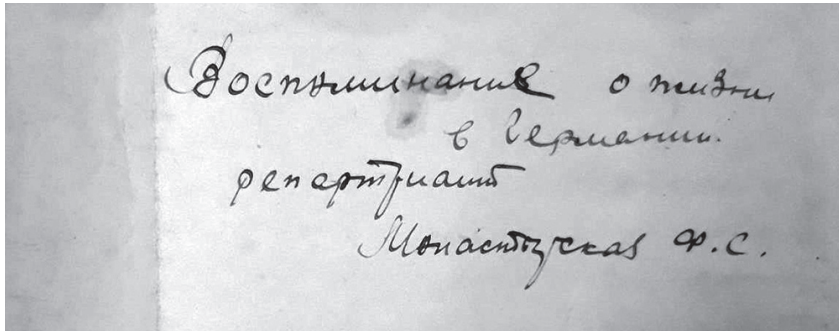 Воспоминание о жизни
в Германии.
репертриант
Монастырская Ф.С.